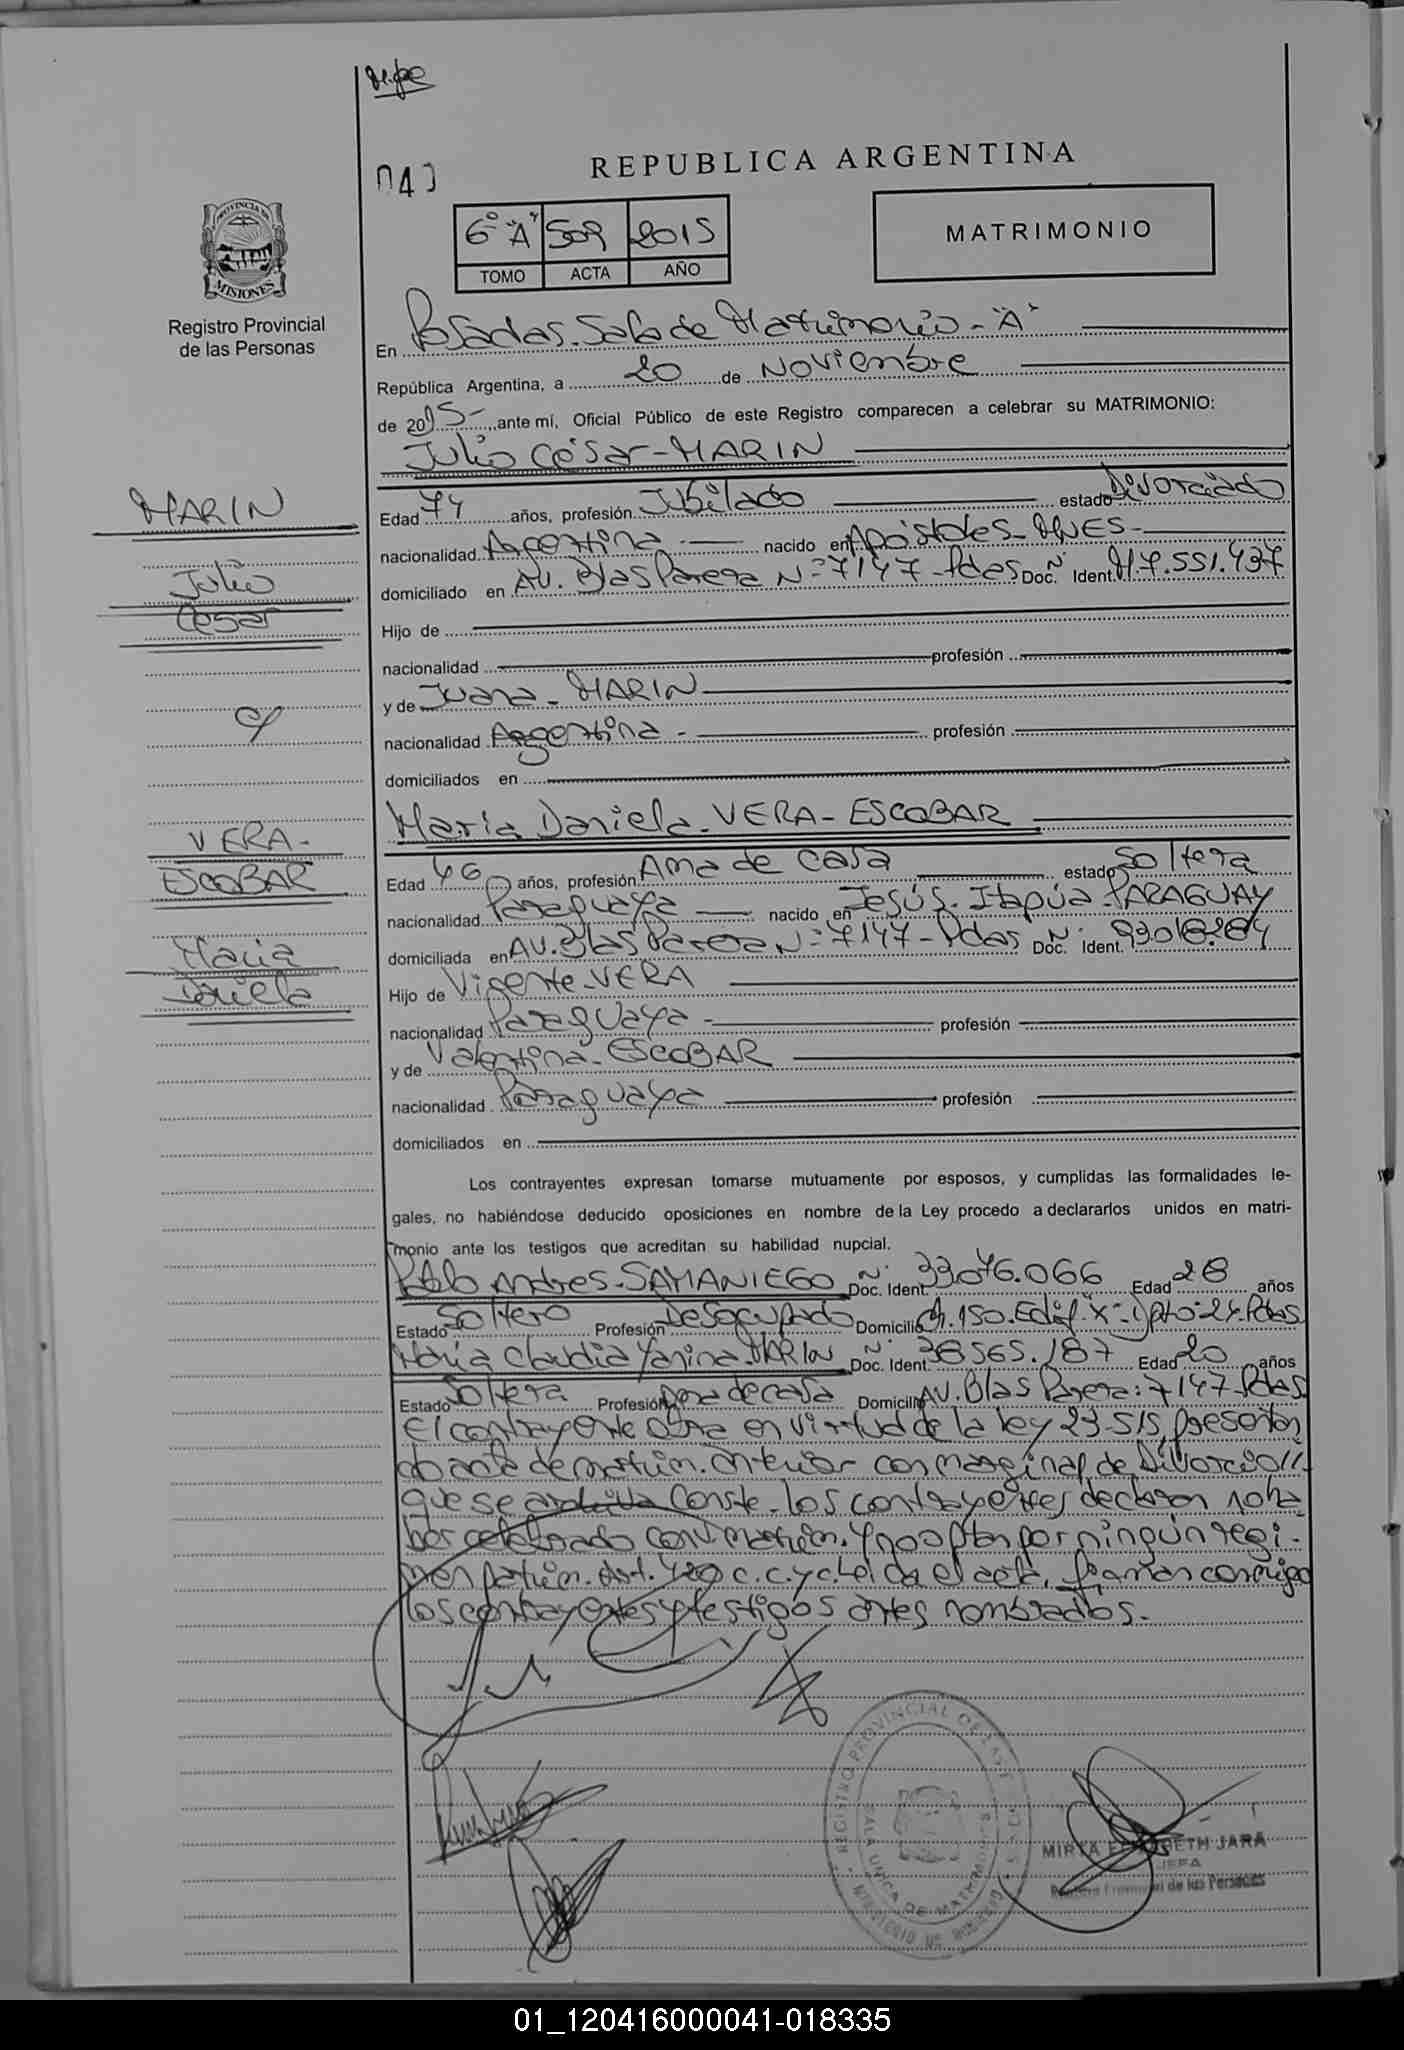 REPUBLICA ARGENTINA
PROVINCIA DE
MISIONES
Registro Provincial
de las Personas
6° "A" 509 2015
TOMO ACTA AÑO
MATRIMONIO
En Posadas. Sala de Matrimonio - "A"
República Argentina, a 20 de Noviembre
de 2015- ante mí, Oficial Público de este Registro comparecen a celebrar su MATRIMONIO:
Julio César - MARIN
MARIN
Julio
Cesar
Edad 74 años, profesión Jubilado estado Divorciado
nacionalidad Argentina nacido en Apóstoles - MNES -
domiciliado en AV. Blas Parera N° 7147 - Pdas Doc. N° Ident. M 7.551.437
Hijo de
nacionalidad profesión
y de Juana - MARIN
nacionalidad Argentina - profesión
domiciliados en
c/
VERA -
ESCOBAR
Maria
Daniela
Maria Daniela - VERA - ESCOBAR
Edad 46 años, profesión Ama de casa estado Soltera
nacionalidad Paraguaya nacido en Jesús - Itapúa - PARAGUAY
domiciliada en AV. Blas Parera N° 7147 - Pdas Doc. N° Ident.
Hijo de Vicente - VERA
nacionalidad Paraguaya - profesión
y de Valentina - ESCOBAR
nacionalidad Paraguaya profesión
domiciliados en
Los contrayentes expresan tomarse mutuamente por esposos, y cumplidas las formalidades le-
gales, no habiéndose deducido oposiciones en nombre de la Ley procedo a declararlos unidos en matri-
monio ante los testigos que acreditan su habilidad nupcial.
Pablo Andres - SAMANIEGO Doc. N° Ident. 33.076.066 Edad 28 años
Estado Soltero Profesión Desocupado Domicilio Ch. 150. Edif. X - Dpto - 24. Pdas
Maria Claudia Yanina MARIN Doc. N° Ident. 38.565.187 Edad 20 años
Estado Soltera Profesión Ama de casa Domicilio AV. Blas Parera: 7147 - Pdas
El contrayente obra en virtud de la ley 23.515, presentan
do acta de matrim. anterior con marginal de Divorcio //
que se archiva Conste - los contrayentes declaran no ha
ber celebrado conv. matrim. y no optan por ningún regi-
men patrim. Art. 420 c.c.y c. Leída el acta, firman conmigo
los contrayentes y testigos antes nombrados.
REGISTRO PROVINCIAL DE LAS PERSONAS
SALA UNICA DE MATRIMONIOS
MIRTA ELIZABETH JARA
JEFA
Registro Provincial de las Personas
01_120416000041-018335